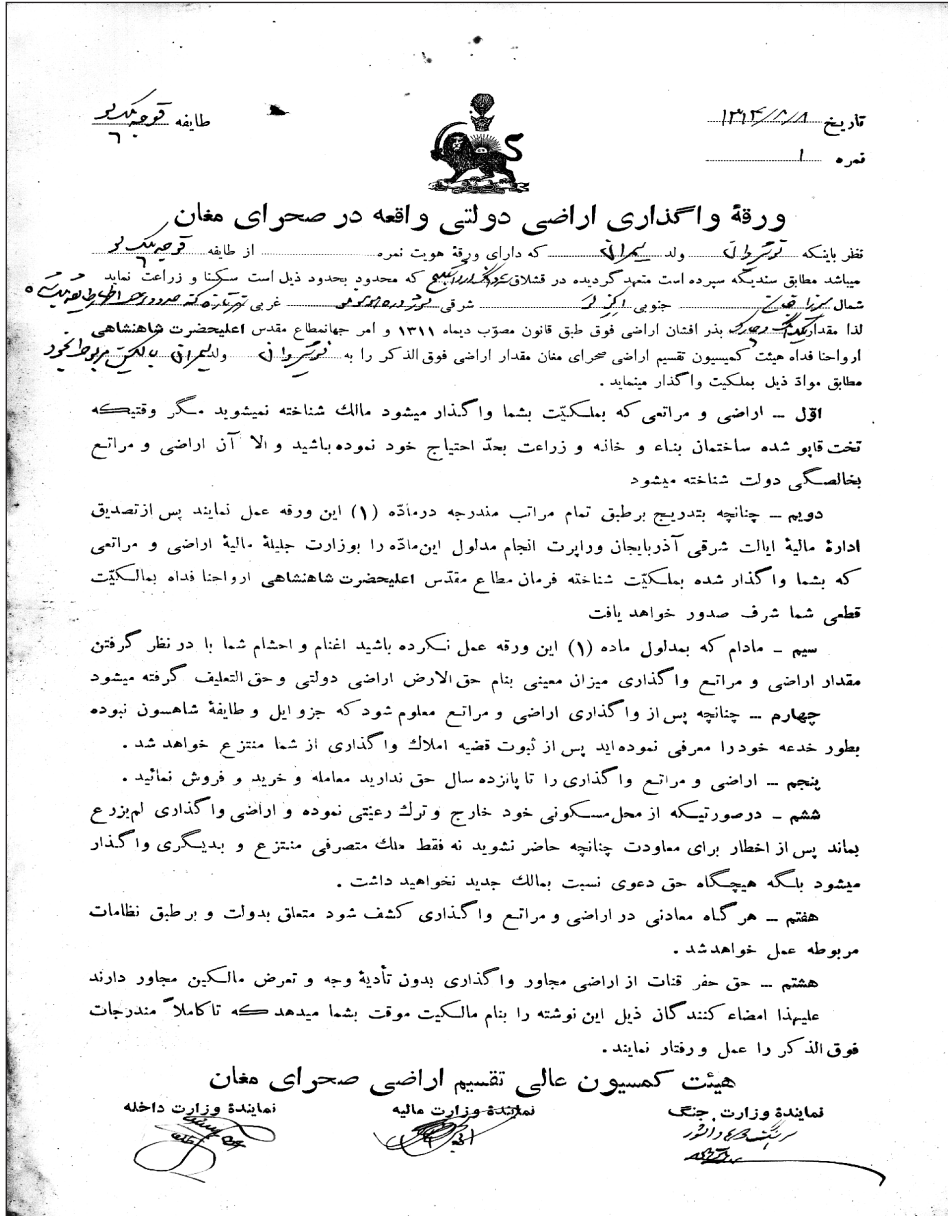 تاریخ
طایفه قوجه بیک لو
نمره ۱
ورقهٔ واگذاری اراضی دولتی واقعه در صحرای مغان
نظر باینکه ولد که دارای ورقهٔ هویت نمره از طایفه قوجه بیک لو
میباشد مطابق سندیکه سپرده است متعهد گردیده در قشلاق که محدود بحدود ذیل است سکنا و زراعت نماید
شمال جنوبی شرقی غربی
لذا مقدار بذر افشان اراضی فوق طبق قانون مصوّب دیماه ۱۳۱۱ و امر جهانمطاع مقدس اعلیحضرت شاهنشاهی
ارواحنا فداه هیئت کمیسیون تقسیم اراضی صحرای مغان مقدار اراضی فوق الذکر را به ولد
مطابق موادّ ذیل بملکیت واگذار مینماید .
اوّل ــ اراضی و مراتعی که بملکیّت بشما واگذار میشود مالك شناخته نمیشوید مگر وقتیکه
تخت قاپو شده ساختمان بناء و خانه و زراعت بحدّ احتیاج خود نموده باشید و الا آن اراضی و مراتع
بخالصگی دولت شناخته میشود
دویم ــ چنانچه بتدریج برطبق تمام مراتب مندرجه درمادّه (۱) این ورقه عمل نمایند پس از تصدیق
ادارهٔ مالیهٔ ایالت شرقی آذربایجان وراپرت انجام مدلول این مادّه را بوزارت جلیلهٔ مالیهٔ اراضی و مراتعی
که بشما واگذار شده بملکیّت شناخته فرمان مطاع مقدّس اعلیحضرت شاهنشاهی ارواحنا فداه بمالکیّت
قطعی شما شرف صدور خواهد یافت
سیم ــ مادام که بمدلول ماده (۱) این ورقه عمل نکرده باشید اغنام و احشام شما با در نظر گرفتن
مقدار اراضی و مراتع واگذاری میزان معینی بنام حق الارض اراضی دولتی و حق التعلیف گرفته میشود
چهارم ــ چنانچه پس از واگذاری اراضی و مراتع معلوم شود که جزو ایل و طایفهٔ شاهسون نبوده
بطور خدعه خودرا معرفی نموده اید پس از ثبوت قضیه املاك واگذاری از شما منتزع خواهد شد .
پنجم ــ اراضی و مراتع واگذاری را تا پانزده سال حق ندارید معامله و خرید و فروش نمائید .
ششم ــ درصورتیکه از محل مسکونی خود خارج و ترك رعیتی نموده و اراضی واگذاری لم یزرع
بماند پس از اخطار برای معاودت چنانچه حاضر نشوید نه فقط ملك متصرفی منتزع و بدیگری واگذار
میشود بلکه هیچگاه حق دعوی نسبت بمالك جدید نخواهید داشت .
هفتم ــ هرگاه معادنی در اراضی و مراتع واگذاری کشف شود متعلق بدولت و برطبق نظامات
مربوطه عمل خواهدشد .
هشتم ــ حق حفر قنات از اراضی مجاور واگذاری بدون تأدیهٔ وجه و تعرض مالکین مجاور دارند
علیهذا امضاء کنندگان ذیل این نوشته را بنام مالکیت موقت بشما میدهد که تا کاملاً مندرجات
فوق الذکر را عمل و رفتار نمایند .
هیئت کمسیون عالی تقسیم اراضی صحرای مغان
نمایندهٔ وزارت جنگ نمایندهٔ وزارت مالیه نمایندهٔ وزارت داخله